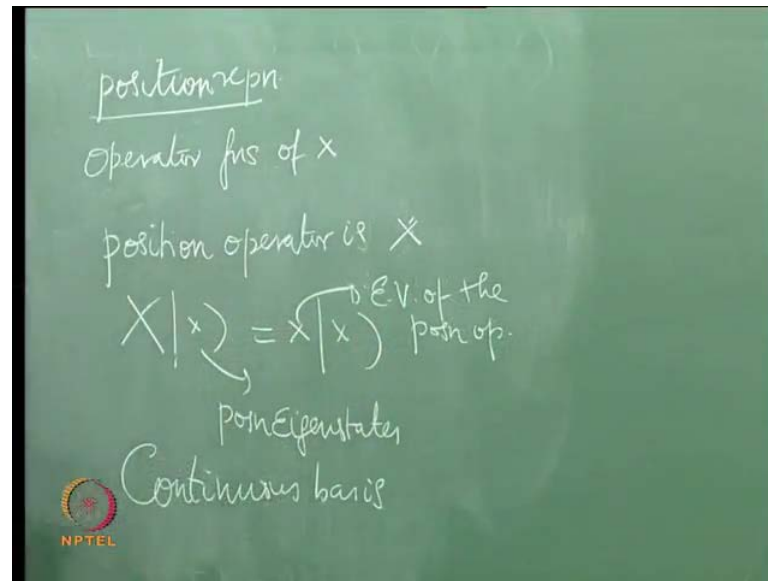 position repn.
Operator fns of x
position operator is X
X|x⟩ = x|x⟩ E.V. of the posn op.
posn Eigenstates
Continuous basis
NPTEL